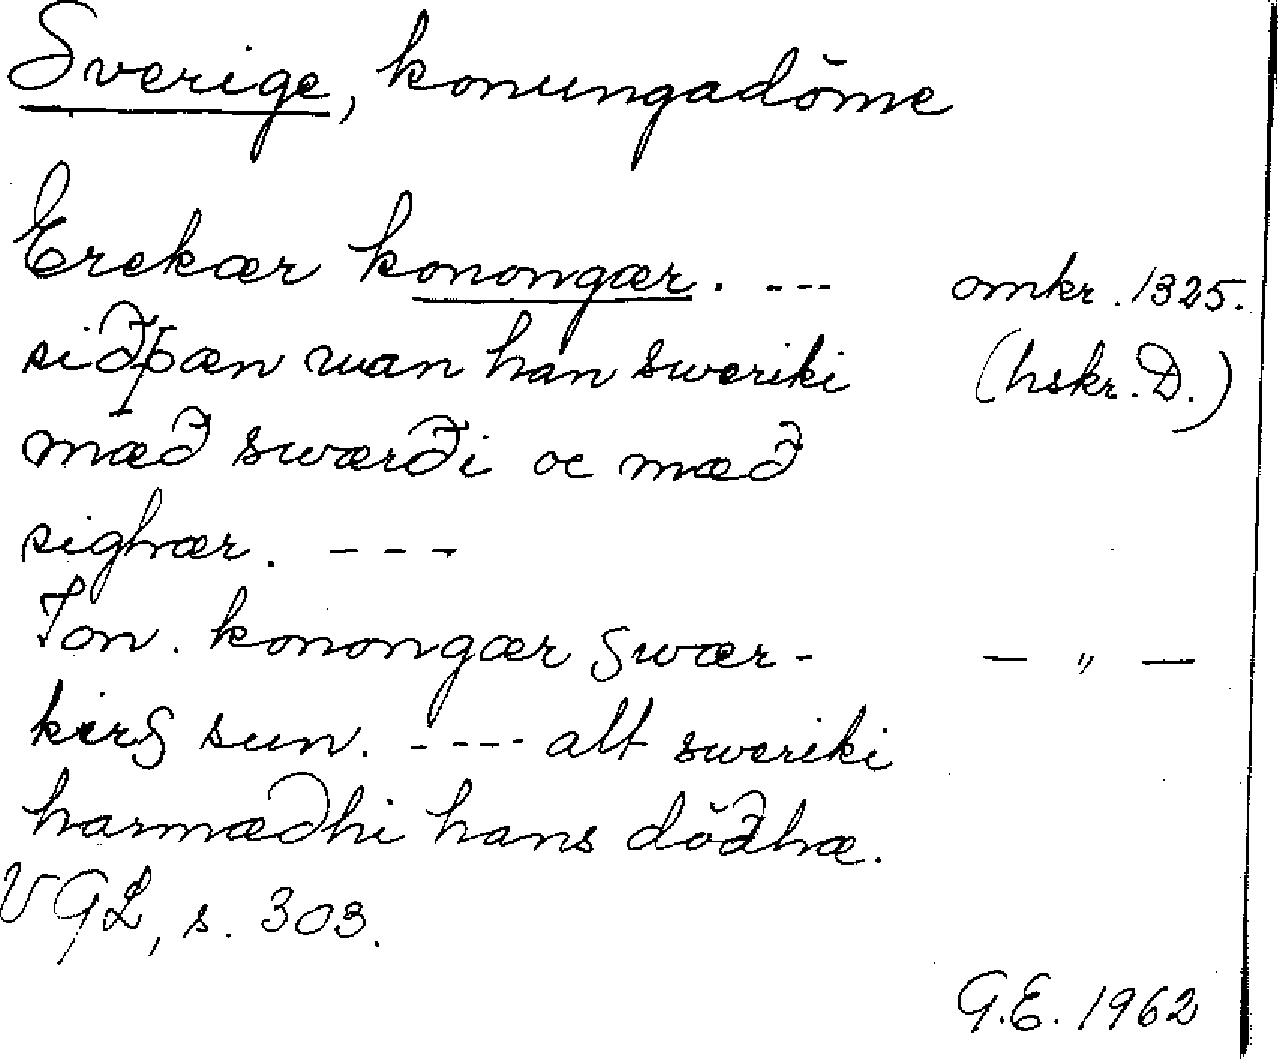 Sverige, konungadöme
Erekær konongær. --- omkr. 1325.
siðþæn wan han sweriki (hskr. D.)
mæð swærði oc mæð
sighær. ---
Ion. konongær swær- — " —
kirs sun. ---- alt sweriki
harmæðhi hans döðhæ.
VGL, s. 303.
G.E. 1962